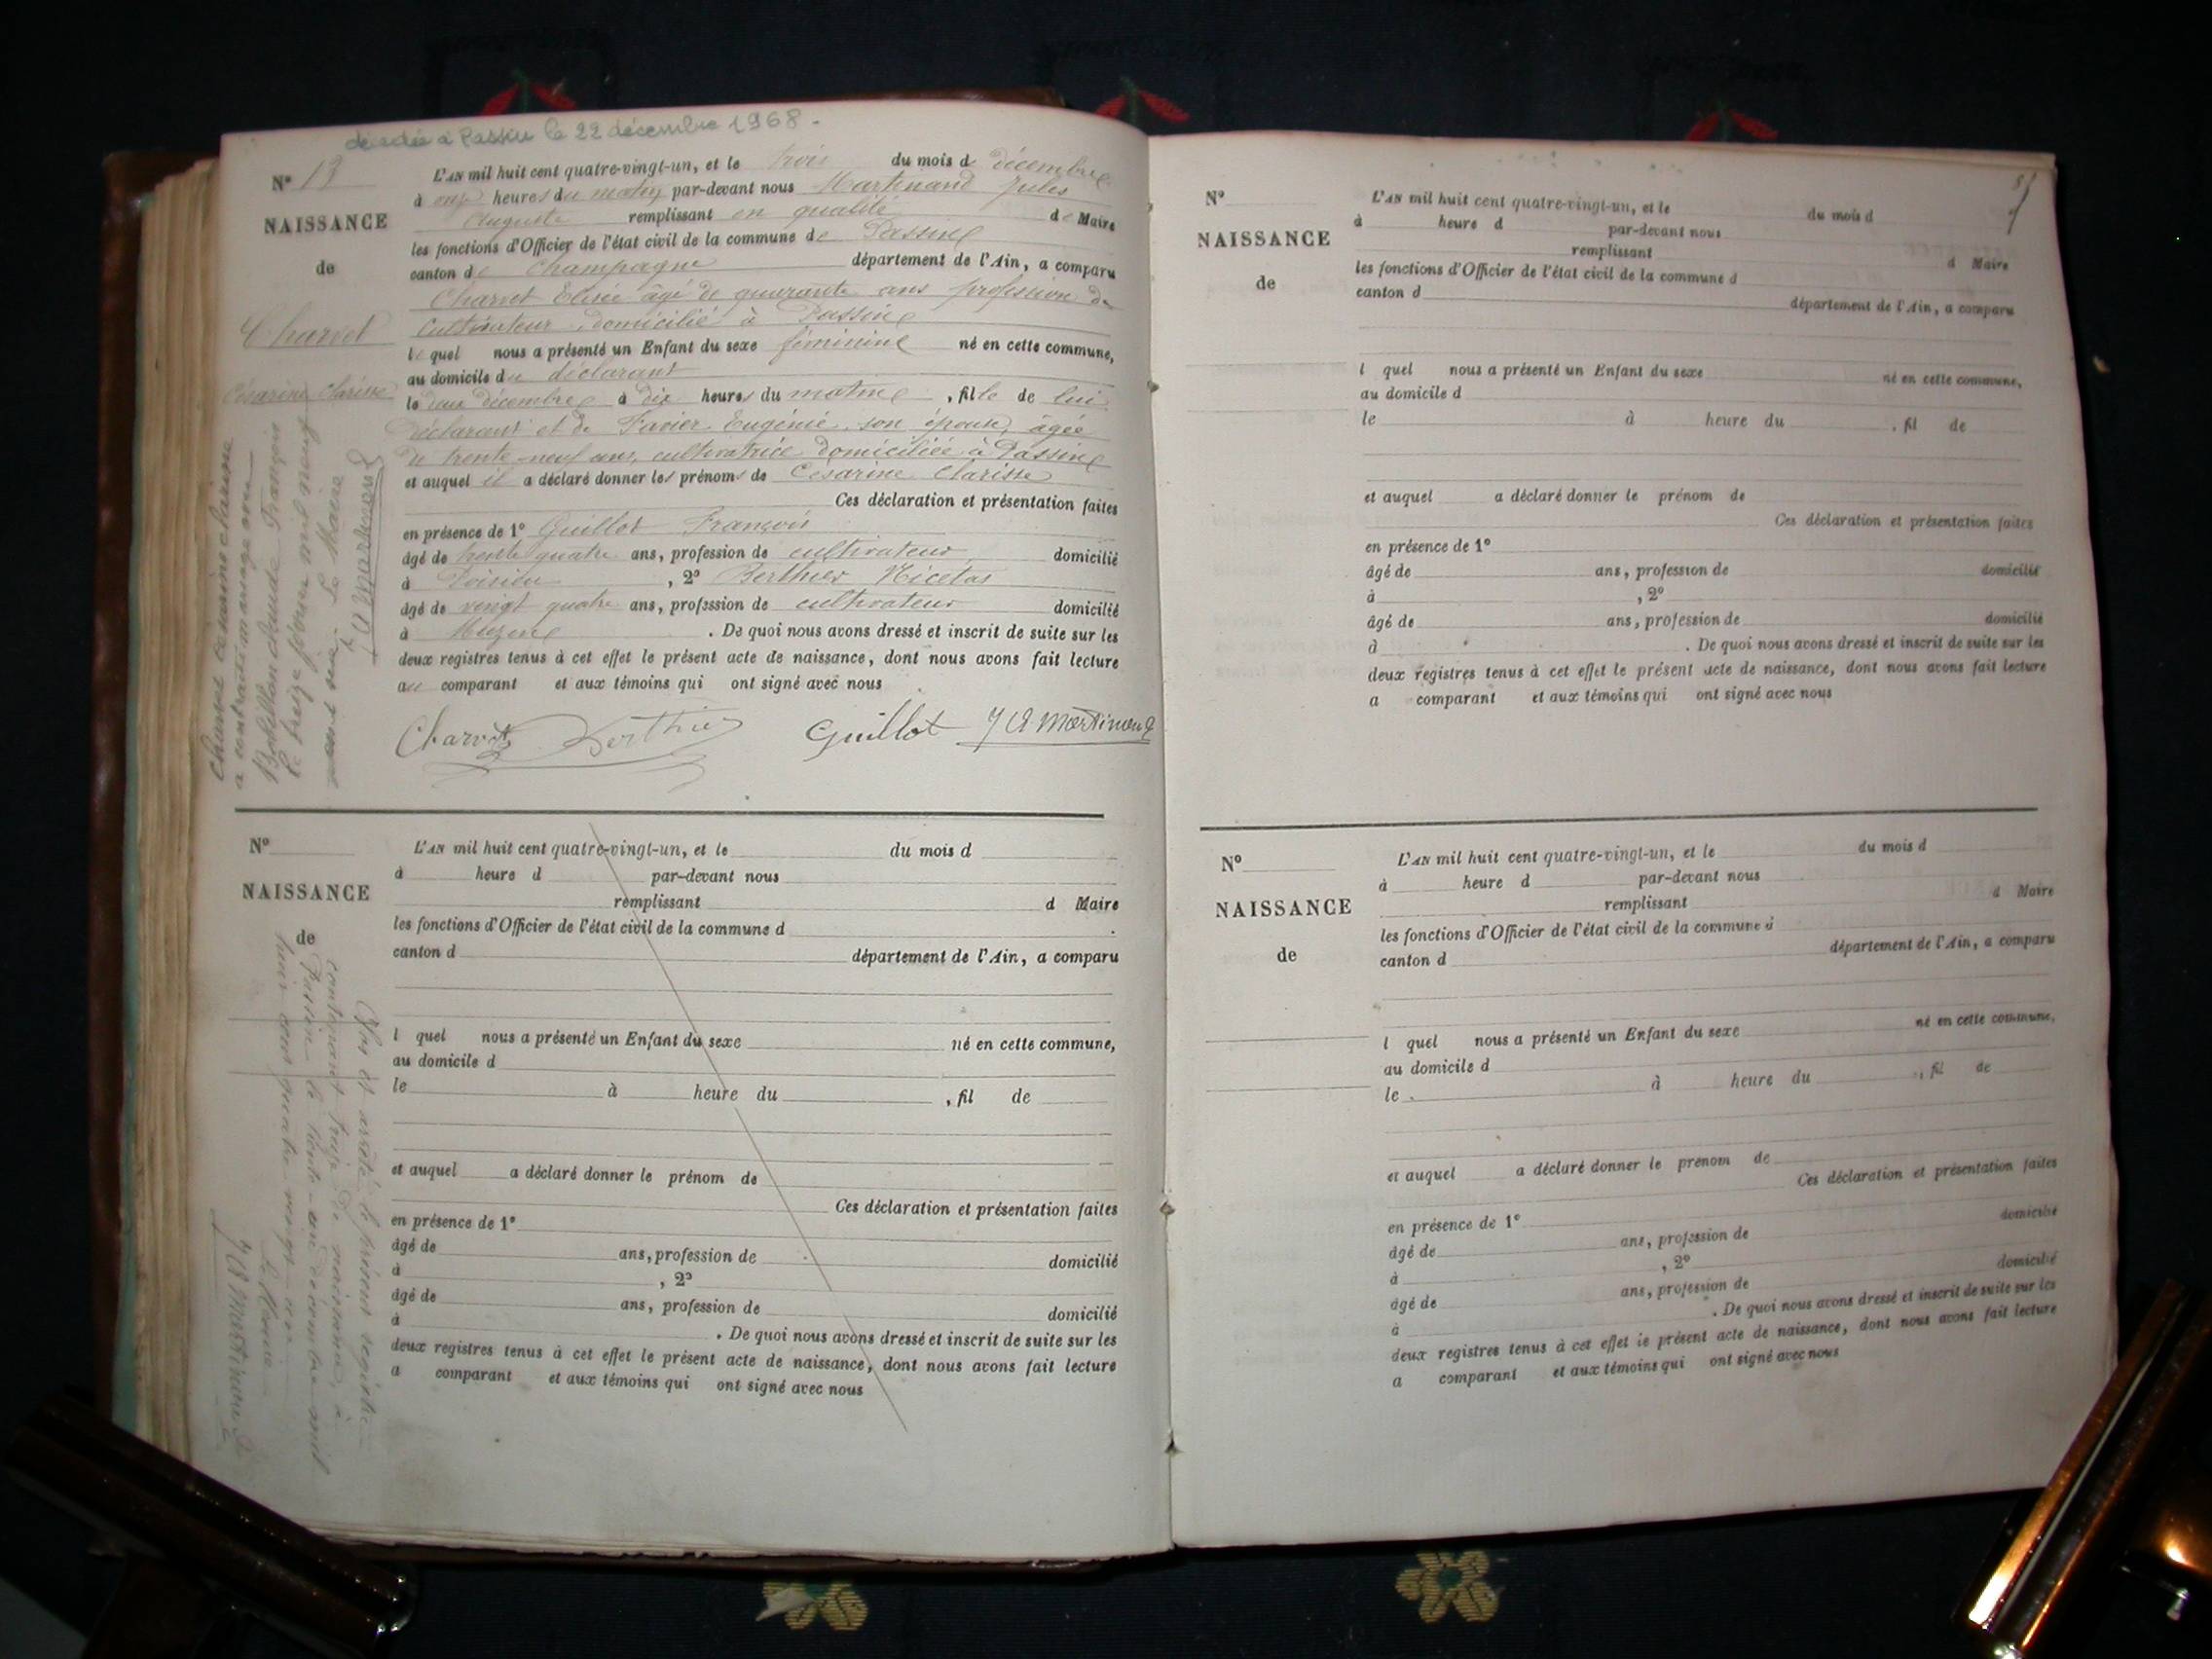 décédée à Passin le 22 décembre 1968.
N° 13
NAISSANCE
de
Charvet
Césarine Clarisse
L'AN mil huit cent quatre-vingt-un, et le trois du mois de décembre
à onze heures du matin par-devant nous Martinand Jules
Auguste remplissant en qualité de Maire
les fonctions d'Officier de l'état civil de la commune de Passin
canton de Champagne département de l'Ain, a comparu
Charvet Elisée âgé de quarante ans profession de
cultivateur domicilié à Passin
lequel nous a présenté un Enfant du sexe féminin né en cette commune,
au domicile du déclarant
le deux décembre à dix heures du matin, fille de lui
déclarant et de Favier Eugénie son épouse, âgée
de trente-neuf ans, cultivatrice domiciliée à Passin
et auquel il a déclaré donner les prénoms de Césarine Clarisse
Ces déclaration et présentation faites
en présence de 1° Guillot François
âgé de trente quatre ans, profession de cultivateur domicilié
à Poisieu, 2° Berthier Nicetas
âgé de vingt quatre ans, profession de cultivateur domicilié
à . De quoi nous avons dressé et inscrit de suite sur les
deux registres tenus à cet effet le présent acte de naissance, dont nous avons fait lecture
au comparant et aux témoins qui ont signé avec nous
Charvet Berthier Guillot J A Martinand
Charvet Césarine Clarisse
a contracté mariage avec
Claude François
le treize février mil neuf
cent . Le Maire
J A Martinand
N°
NAISSANCE
de
L'AN mil huit cent quatre-vingt-un, et le du mois d
à heure d par-devant nous
remplissant d Maire
les fonctions d'Officier de l'état civil de la commune d
canton d département de l'Ain, a comparu
l quel nous a présenté un Enfant du sexe né en cette commune,
au domicile d
le à heure du , fil de
et auquel a déclaré donner le prénom de
Ces déclaration et présentation faites
en présence de 1°
âgé de ans, profession de domicilié
à , 2°
âgé de ans, profession de domicilié
à . De quoi nous avons dressé et inscrit de suite sur les
deux registres tenus à cet effet le présent acte de naissance, dont nous avons fait lecture
a comparant et aux témoins qui ont signé avec nous
Clos et arrêté le présent registre
contenant treize de naissance, à
Passin le trente-un décembre mil
huit cent quatre-vingt-un
Le Maire
J A Martinand
N°
NAISSANCE
de
L'AN mil huit cent quatre-vingt-un, et le du mois d
à heure d par-devant nous
remplissant d Maire
les fonctions d'Officier de l'état civil de la commune d
canton d département de l'Ain, a comparu
l quel nous a présenté un Enfant du sexe né en cette commune,
au domicile d
le à heure du , fil de
et auquel a déclaré donner le prénom de
Ces déclaration et présentation faites
en présence de 1°
âgé de ans, profession de domicilié
à , 2°
âgé de ans, profession de domicilié
à . De quoi nous avons dressé et inscrit de suite sur les
deux registres tenus à cet effet le présent acte de naissance, dont nous avons fait lecture
a comparant et aux témoins qui ont signé avec nous
N°
NAISSANCE
de
L'AN mil huit cent quatre-vingt-un, et le du mois d
à heure d par-devant nous
remplissant d Maire
les fonctions d'Officier de l'état civil de la commune d
canton d département de l'Ain, a comparu
l quel nous a présenté un Enfant du sexe né en cette commune,
au domicile d
le à heure du , fil de
et auquel a déclaré donner le prénom de
Ces déclaration et présentation faites
en présence de 1°
âgé de ans, profession de domicilié
à , 2°
âgé de ans, profession de domicilié
à . De quoi nous avons dressé et inscrit de suite sur les
deux registres tenus à cet effet le présent acte de naissance, dont nous avons fait lecture
a comparant et aux témoins qui ont signé avec nous